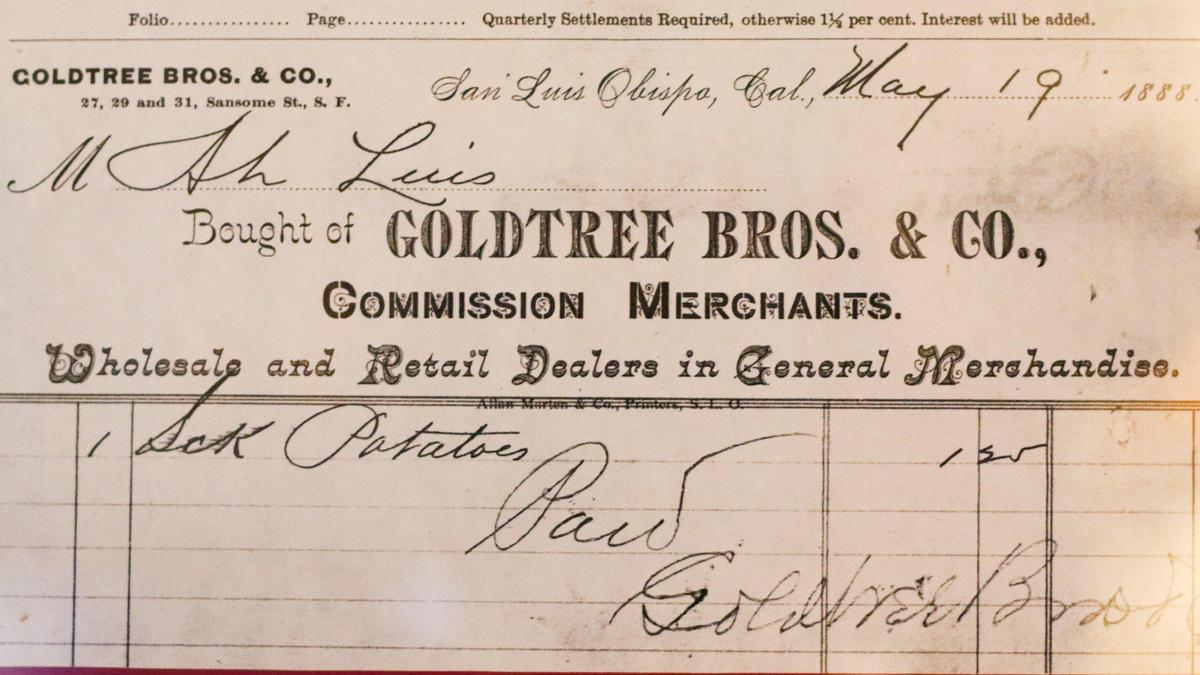 Folio............... Page............... Quarterly Settlements Required, otherwise 1½ per cent. Interest will be added.
GOLDTREE BROS. & CO.,
27, 29 and 31, Sansome St., S. F.
San Luis Obispo, Cal., May 19 1888
M Ah Luis
Bought of GOLDTREE BROS. & CO.,
COMMISSION MERCHANTS.
Wholesale and Retail Dealers in General Merchandise.
Allan Marten & Co., Printers, S. L. O.
1 Sck Potatoes
Paid
Goldtree Bros